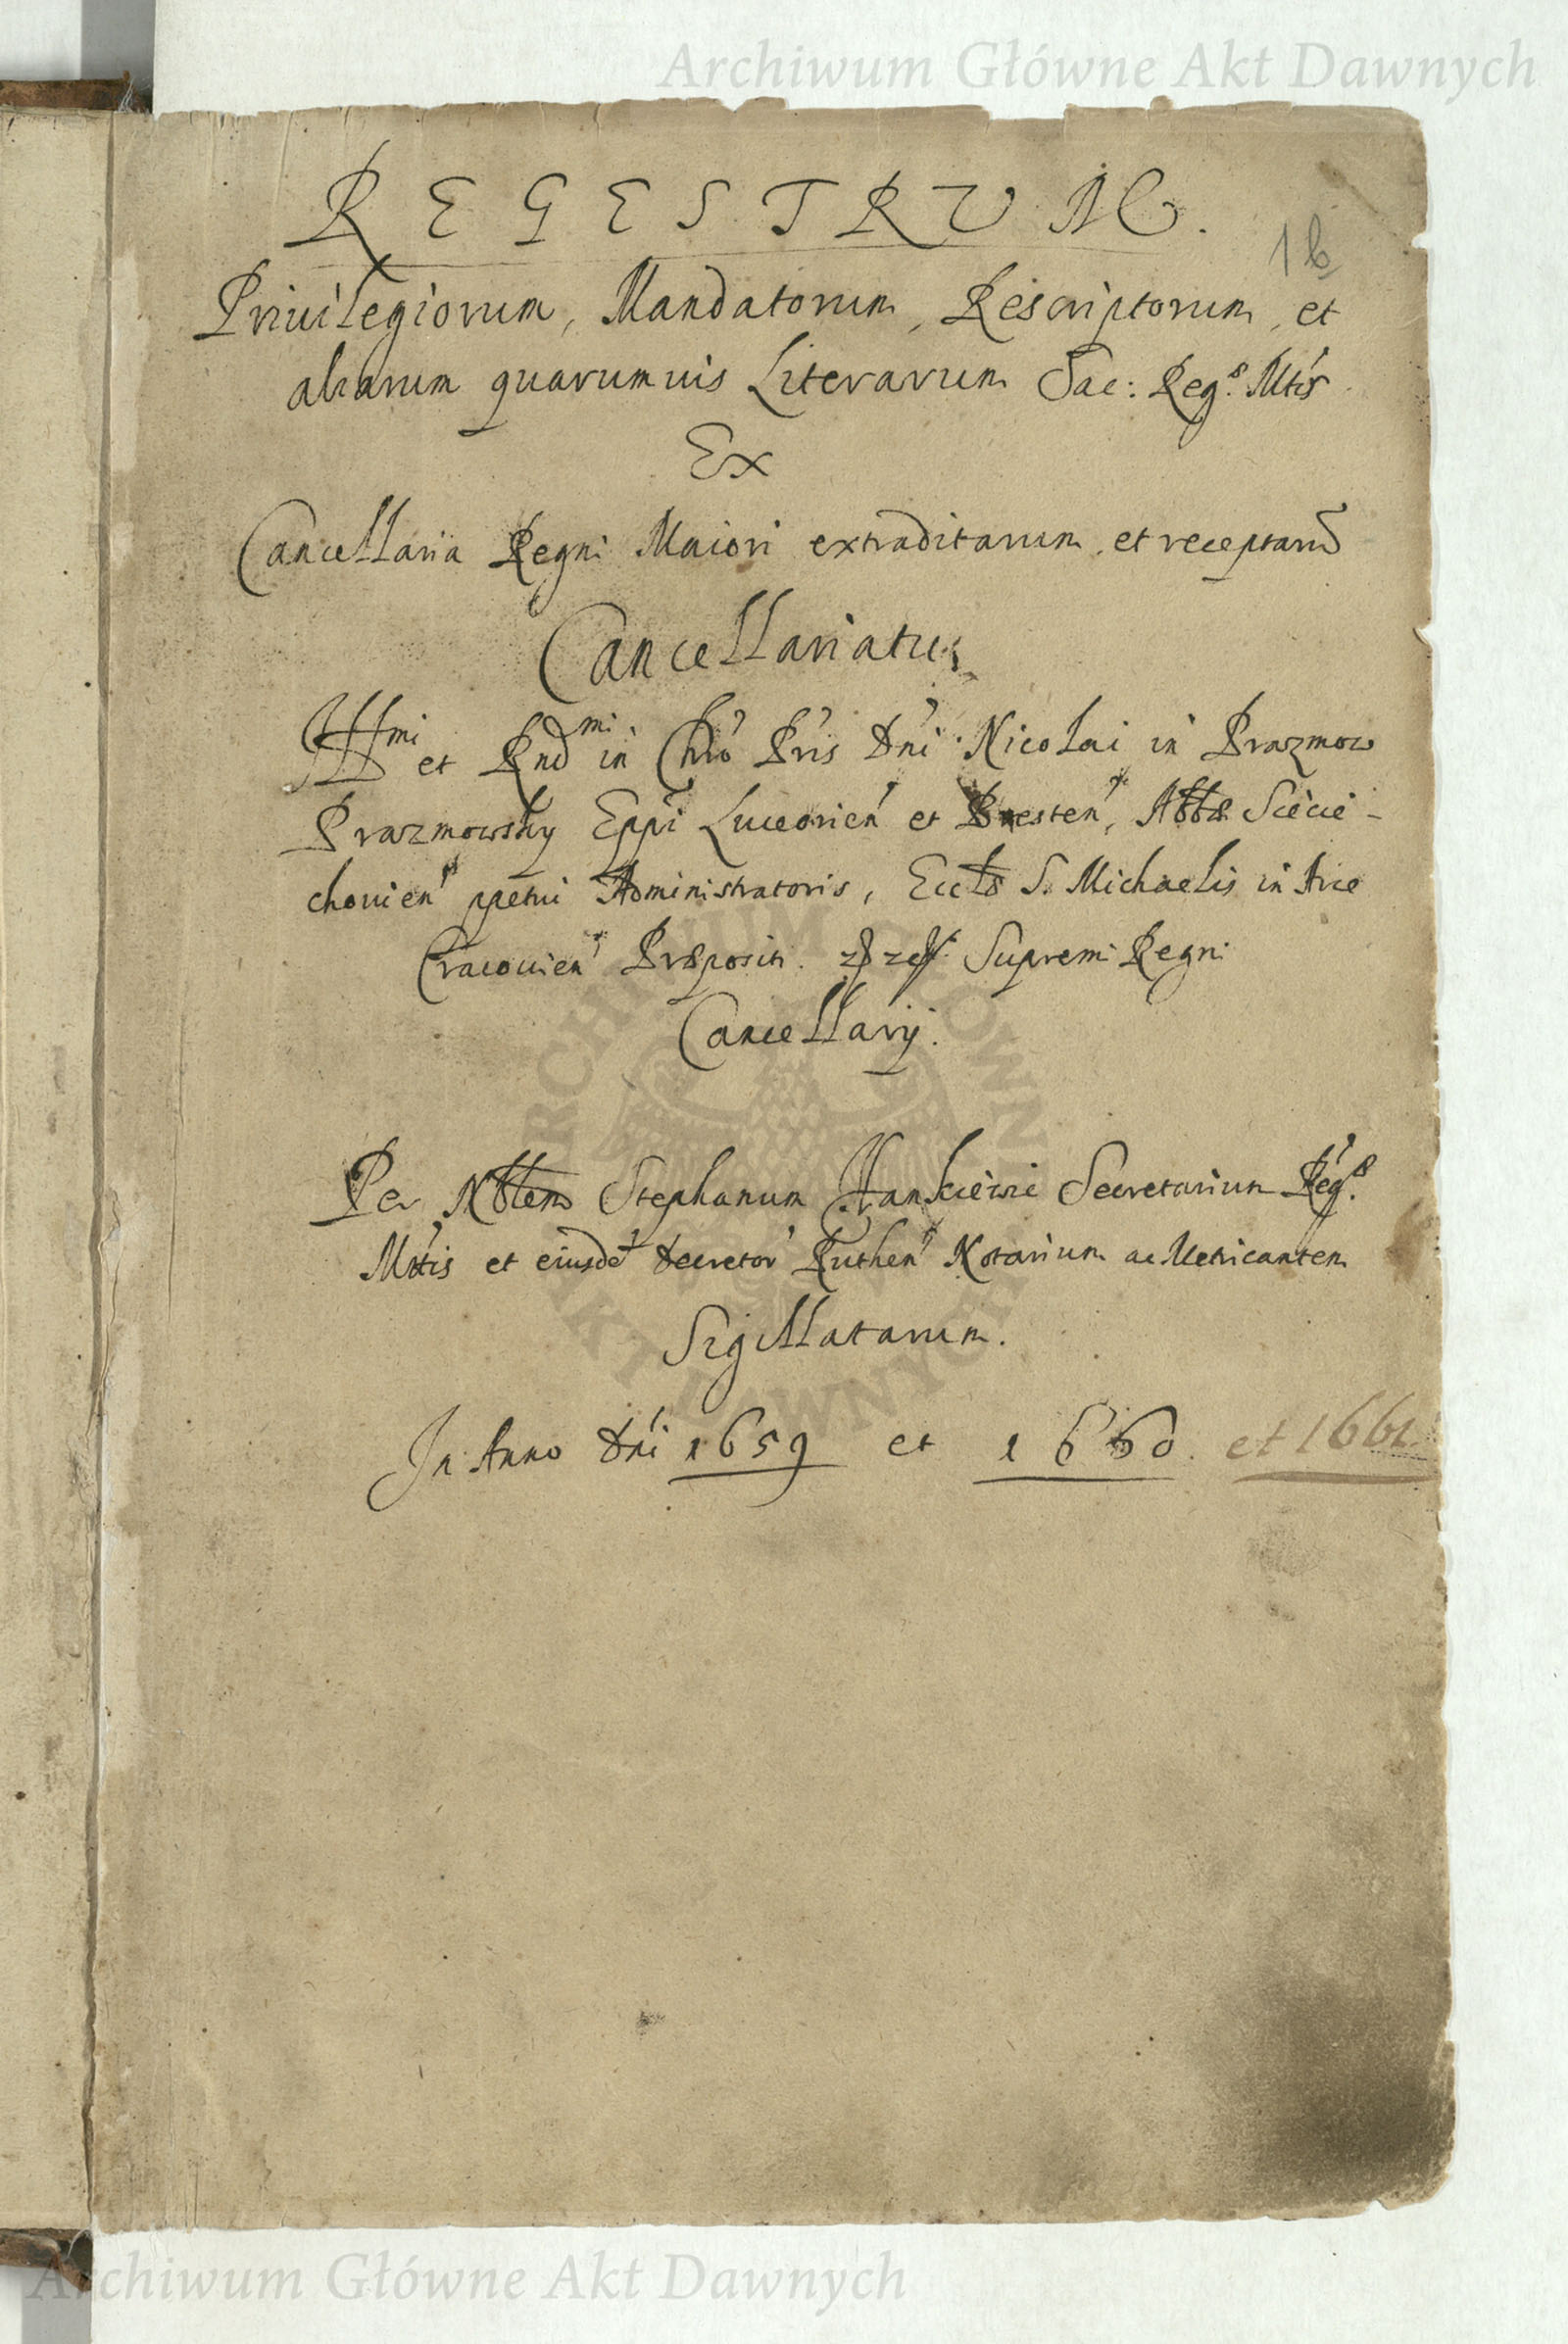 Archiwum Główne Akt Dawnych
REGESTRUM.
1b
Priuilegiorum, Mandatorum, Rescriptorum, et
aliarum quarumuis Literarum Sac: Reg. Mtis
Ex
Cancellaria Regni Maiori extraditarum et receptarū
Cancellariatus
Illmi et Rndmi in Chro Pris Dni Nicolai in Prazmow
Prazmowsky Eppi Luceorien et Bresten, Abbis Sciecie-
chouien ppetui Administratoris, Eccls S. Michaelis in Arce
Cracouien Præpositi. Supremi Regni
Cancellarij.
Per Nblem Stephanum Hankiewic Secretarium Reg.
Mtis et eiusdē Decretor Ruthen Notarium ac Metricantem
Sigillatarum.
In Anno Dni 1659 et 1660. et 1661.
ARCHIWUM GŁÓWNE AKT DAWNYCH
Archiwum Główne Akt Dawnych